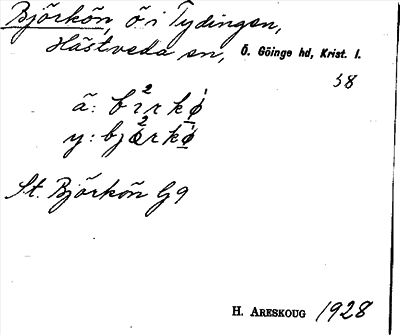 Björkön, ö i Tydingen,
Hästveda sn, Ö. Göinge hd, Krist. l.
58
ä: bir²kö̀
y: bjær²kö̀
St. Björkön G9
H. ARESKOUG 1928